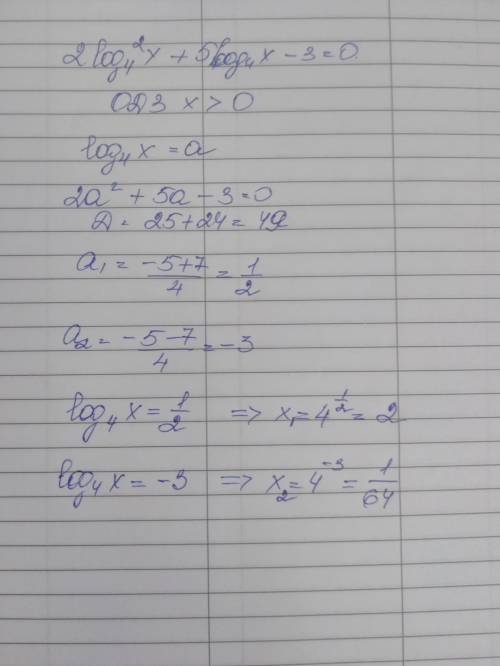 2log₄²x + 5log₄x - 3 = 0
ОДЗ x > 0
log₄x = a
2a² + 5a - 3 = 0
D = 25 + 24 = 49
a₁ = (-5+7)/4 = 1/2
a₂ = (-5-7)/4 = -3
log₄x = 1/2 => x₁ = 4^(1/2) = 2
log₄x = -3 => x₂ = 4^(-3) = 1/64